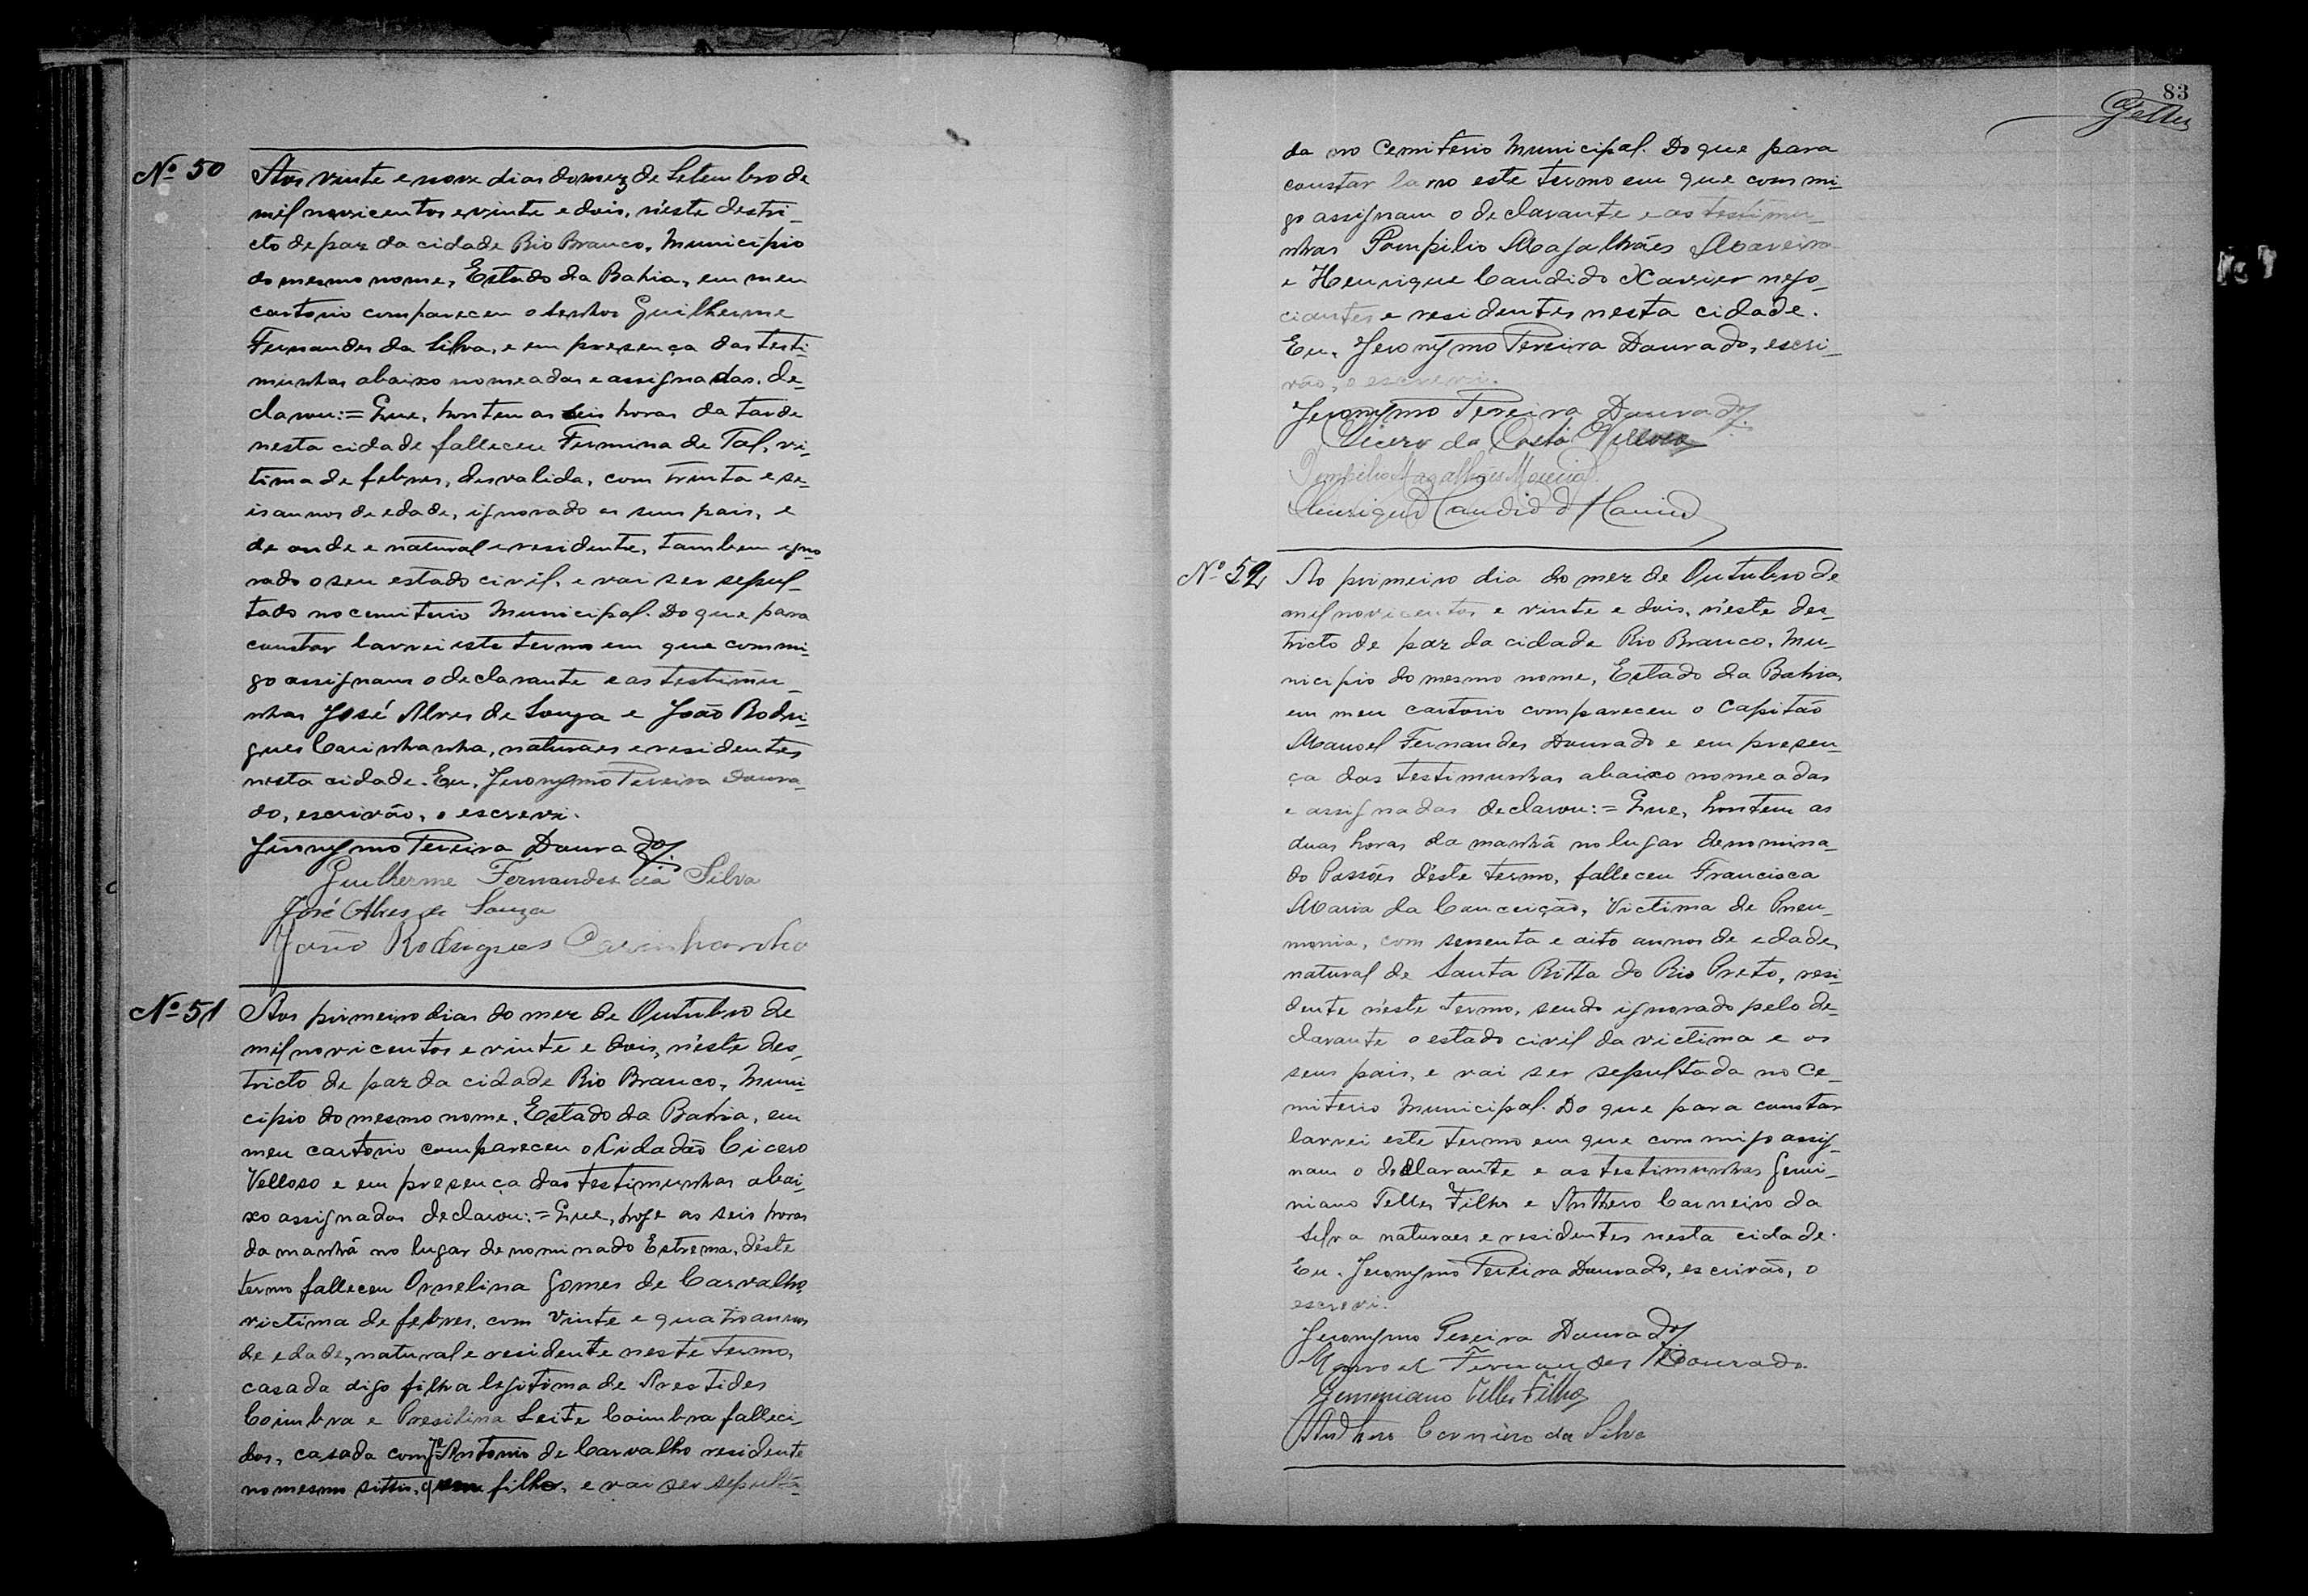 Nº 50
Aos vinte e nove dias do mez de Setembro de
mil novicentos e vinte e dois, n'este destri-
cto de paz da cidade Rio Branco, Municipio
do mesmo nome, Estado da Bahia, em meu
cartorio compareceu o senhor Guilherme
Fernandes da Silva, e em presença das testi-
munhas abaixo nomeadas e assignadas, de-
clarou:= Que, hontem as seis horas da tarde
nesta cidade falleceu Firmina de Tal, vi-
tima de febres, desvalida, com trinta e se-
is annos de edade, ignorado os seus pais, e
de onde e natural e residente, tambem igno
rado o seu estado civil, e vai ser sepul-
tado no cemiterio Municipal. Do que para
constar larvei este termo em que commi-
go assignam o declarante e as testimu-
nhas José Alves de Souza e João Rodri-
gues Carinhanha, naturaes e residentes
nesta cidade. Eu, Jeronymo Pereira Doura-
do, escrivão, o escrevi.
Jeronymo Pereira Dourado
Guilherme Fernandes da Silva
José Alves de Souza
João Rodrigues Carinhanha
Nº 51
Aos primeiro dias do mez de Outubro de
mil novicentos e vinte e dois, n'este des-
tricto de paz da cidade Rio Branco, Muni-
cipio do mesmo nome, Estado da Bahia, em
meu cartorio compareceu o Cidadão Cicero
Velloso e em presença das testimunhas abai-
xo assignadas declarou:= Que, hoje as seis horas
da manhã no lugar denominado Estrema, d'este
termo falleceu Ornelina Gomes de Carvalho,
victima de febres, com vinte e quatro annos
de edade, natural e residente neste termo,
casada digo filha legitima de Arestides
Coimbra e Presilina Leite Coimbra falleci-
dos, casada com Je Antonio de Carvalho residente
no mesmo sittio, filho, e vai ser sepulta-
83
da no Cemiterio Municipal. Do que para
constar larvo este termo em que commi-
go assignam o declarante e as testimu-
nhas Pompilio Magalhães Macieira
e Henrique Candido Xavier nego-
ciantes e residentes nesta cidade.
Eu, Jeronymo Pereira Dourado, escri-
vão, o escrevi.
Jeronymo Pereira Dourado
Cicero da Costa Velloso
Pompilio Magalhães
Henrique Candido
Nº 52
Ao primeiro dia do mez de Outubro de
mil novicentos e vinte e dois, n'este des-
tricto de paz da cidade Rio Branco, Mu-
nicipio do mesmo nome, Estado da Bahia,
em meu cartorio compareceu o Capitão
Manoel Fernandes Dourado e em presen-
ça das testimunhas abaixo nomeadas
e assignadas declarou:= Que, hontem as
duas horas da manhã no lugar denomina-
do Passões d'este termo, falleceu Francisca
Maria da Conceição, Victima de Pneu-
monia, com sessenta e oito annos de edade,
natural de Santa Ritta do Rio Preto, resi-
dente n'este termo, sendo ignorado pelo de-
clarante o estado civil da victima e os
seus pais, e vai ser sepultada no Ce-
miterio Municipal. Do que para constar
larvei este termo em que commigo assig-
nam o declarante e as testimunhas Gemi-
niano Telles Filho e Anthero Carneiro da
Silva naturaes e residentes nesta cidade.
Eu, Jeronymo Pereira Dourado, escrivão, o
escrevi.
Jeronymo Pereira Dourado
Manoel Fernandes Dourado
Geminiano Telles Filho
Anthero Carneiro da Silva